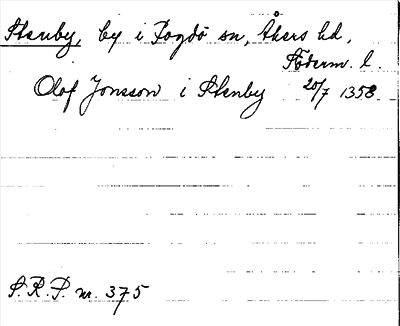 Stenby, by i Fogdö sn, Åkers hd,
Söderm. l.
Olof Jonsson i Stenby 20/7 1358.
S. R. P. nr. 375